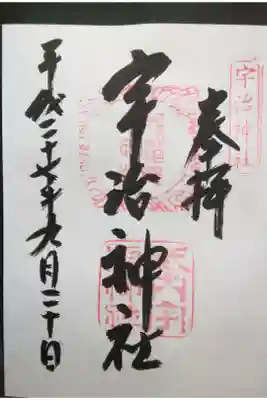 宇治神社
奉拝
宇治神社
平成二十七年九月二十日